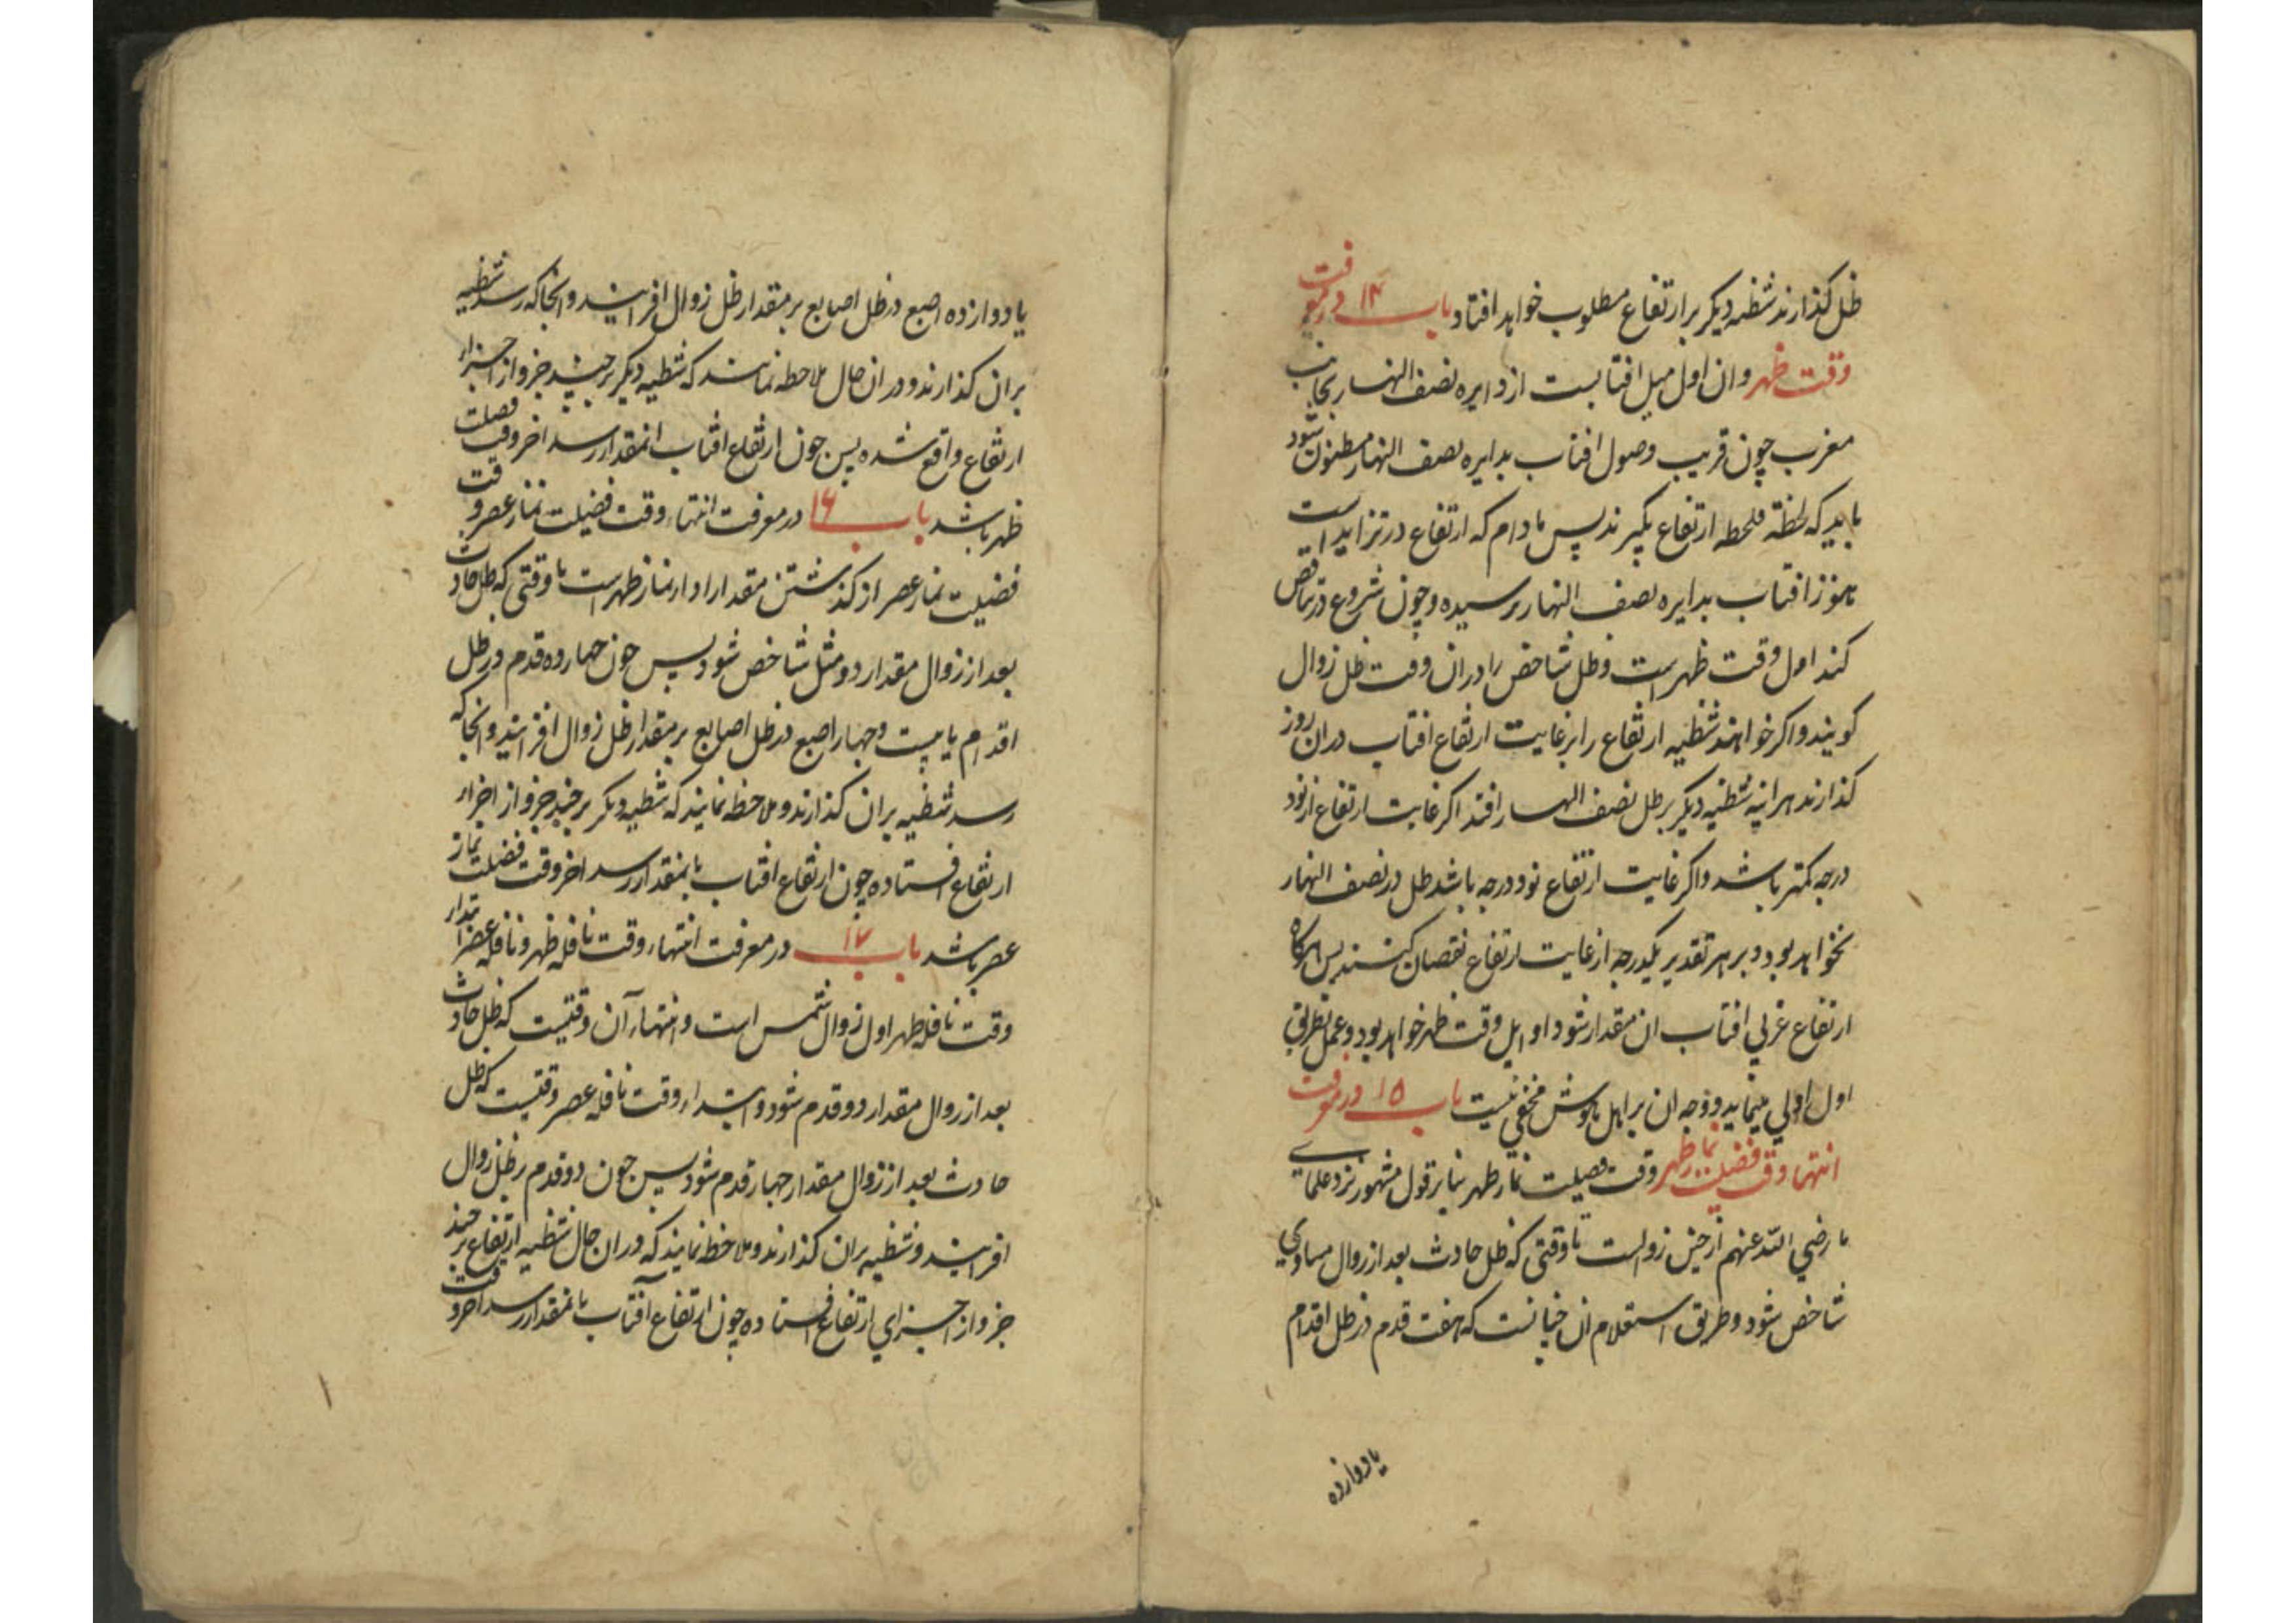 ظل گذارند شظیه دیگر بر ارتفاع مطلوب خواهد افتاد باب ۱۴ در معرفت
وقت ظهر وان اول میل افتابست از دایره نصف النهار بجانب
مغرب چون قریب وصول افتاب بدایره نصف النهار مظنون شود
باید که لحظة فلحظه ارتفاع بگیرند پس مادام که ارتفاع در تزاید است
هنوز افتاب بدایره نصف النهار نرسیده و چون شروع در تناقص
کند اول وقت ظهر است و ظل شاخص را در ان وقت ظل زوال
کویند و اکر خواهند شظیه ارتفاع را بر غایت ارتفاع افتاب در ان روز
گذارند هراینه شظیه دیگر بر ظل نصف النهار افتد اکر غایت ارتفاع از نود
درجه کمتر باشد و اکر غایت ارتفاع نود درجه باشد ظل در نصف النهار
نخواهد بود و بر هر تقدیر یکدرجه از غایت ارتفاع نقصان کنند پس هرکاه
ارتفاع غربی افتاب ان مقدار شود اوایل وقت ظهر خواهد بود و عمل بطریق
اول اولی مینماید و وجه ان بر اهل هوش مخفی نیست باب ۱۵ در معرفت
انتها وقت فضیلت نماز ظهر وقت فضیلت نماز ظهر بنابر قول مشهور نزد علمای
ما رضی الله عنهم از حین زوالست تا وقتی که ظل حادث بعد از زوال مساوی
شاخص شود و طریق استعلام ان چنانست که هفت قدم در ظل اقدام
یا دوازده
یا دوازده اصبع در ظل اصابع بر مقدار ظل زوال افزایند و انجا که رسد شظیه
بران گذارند و در ان حال ملاحظه نمایند که شظیه دیگر بر چند جزو از اجزاء
ارتفاع واقع شده پس چون ارتفاع افتاب انمقدار رسد اخر وقت فضیلت
ظهر باشد باب ۱۶ در معرفت انتهاء وقت فضیلت نماز عصر وقت
فضیلت نماز عصر از کذشتن مقدار ادا نماز ظهر است تا وقتی که ظل حادث
بعد از زوال مقدار دو مثل شاخص شود پس چون چهارده قدم در ظل
اقدام یا بیست و چهار اصبع در ظل اصابع بر مقدار ظل زوال افزایند و انجا که
رسد شظیه بران گذارند و ملاحظه نمایند که شظیه دیگر بر چند جزو از اجزاء
ارتفاع افتاده چون ارتفاع افتاب بانمقدار رسد اخر وقت فضیلت نماز
عصر باشد باب ۱۷ در معرفت انتهاء وقت نافله ظهر و نافله عصر ابتداء
وقت نافله ظهر اول زوال شمس است و انتهاء آن وقتیست که ظل حادث
بعد از زوال مقدار دو قدم شود و ابتداء وقت نافله عصر وقتیست که ظل
حادث بعد از زوال مقدار چهار قدم شود پس چون دو قدم بر ظل زوال
افزایند و شظیه بران گذارند و ملاحظه نمایند که در ان حال شظیه ارتفاع بر چند
جزو از اجزای ارتفاع افتاده چون ارتفاع آفتاب بانمقدار رسد اخر وقت